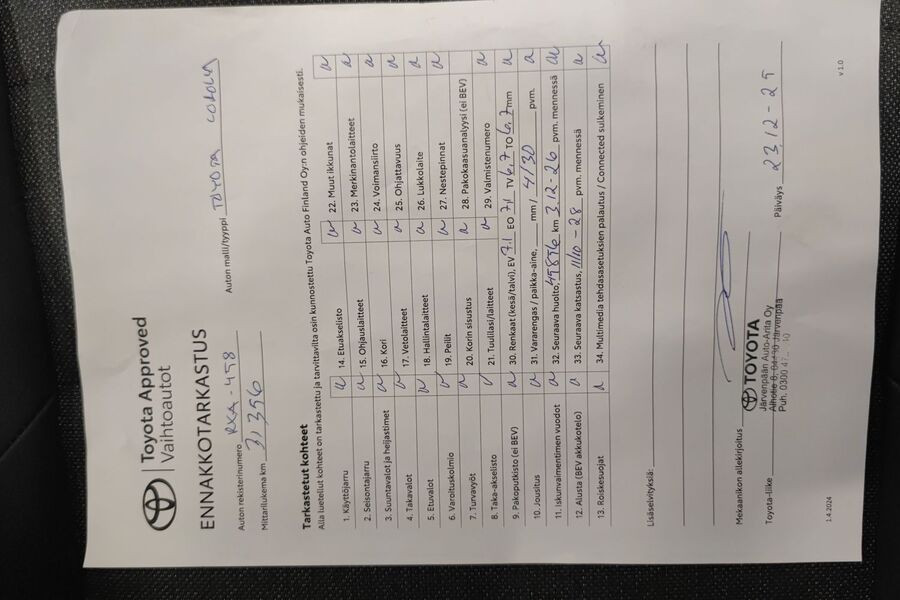 Toyota Approved
Vaihtoautot
ENNAKKOTARKASTUS
Auton rekisterinumero RXA-458 Auton malli/tyyppi TOYOTA COROLLA
Mittarilukema km 31,356
Tarkastetut kohteet
Alla luetellut kohteet on tarkastettu ja tarvittavilta osin kunnostettu Toyota Auto Finland Oy:n ohjeiden mukaisesti.
1. Käyttöjarru 14. Etuakselisto 22. Muut ikkunat
2. Seisontajarru 15. Ohjauslaitteet 23. Merkinantolaitteet
3. Suuntavalot ja heijastimet 16. Kori 24. Voimansiirto
4. Takavalot 17. Vetolaitteet 25. Ohjattavuus
5. Etuvalot 18. Hallintalaitteet 26. Lukkolaite
6. Varoituskolmio 19. Peilit 27. Nestepinnat
7. Turvavyöt 20. Korin sisustus 28. Pakokaasuanalyysi (ei BEV)
8. Taka-akselisto 21. Tuulilasi/laitteet 29. Valmistenumero
9. Pakoputkisto (ei BEV) 30. Renkaat (kesä/talvi), EV 7.1 EO 7.1 TV 6,7 TO 6,7 mm
10. Jousitus 31. Vararengas / paikka-aine, mm / 4/30 pvm.
11. Iskunvaimentimien vuodot 32. Seuraava huolto, 45896 km 3.12-26 pvm. mennessä
12. Alusta (BEV akkukotelo) 33. Seuraava katsastus, 11/10-28 pvm. mennessä
13. Roiskesuojat 34. Multimedia tehdasasetuksien palautus / Connected sulkeminen
Lisäselvityksiä:
Mekaanikon allekirjoitus
Toyota-liike TOYOTA Päiväys 23.12-25
Järvenpään Auto-Arita Oy
Alhotie 8, 04430 Järvenpää
Puh. 0300
1.4.2024 v 1.0